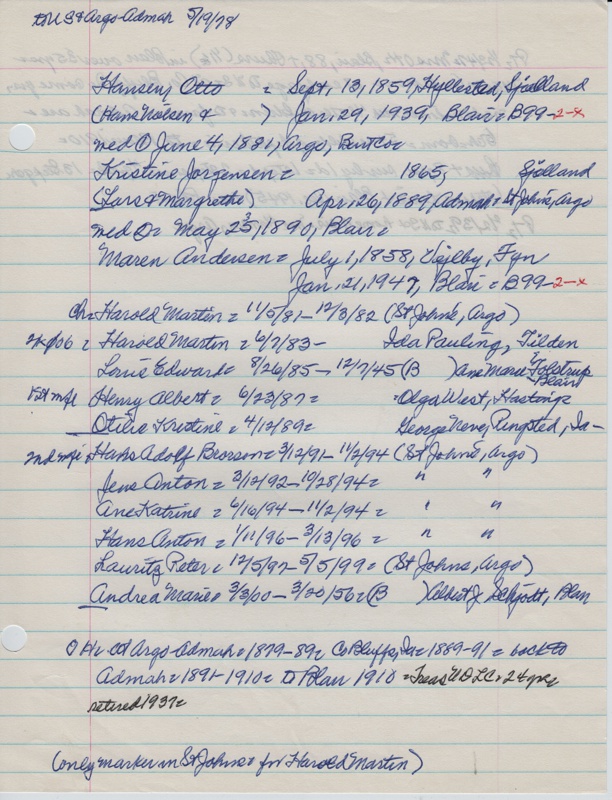 to U S & Argo-Admah 5/19/78
Hansen, Otto = Sept. 13, 1859, Hyllested, Sjælland
(Hans Nielsen & ) Jan. 29, 1939, Blair = B99-2-x
med ① June 4, 1881, Argo, Burt Co =
Kristine Jorgensen = 1865, Sjælland
(Lars & Margrethe) Apr. 26, 1889, Admah = St Johns, Argo
med ② = May 25, 1890, Blair =
Maren Andersen = July 1, 1858, Vejlby, Fyn
Jan. 21, 1947, Blair = B99-2-x
Ch = Harold Martin = 11/5/81 - 12/3/82 (St Johns, Argo)
Harold Martin = 6/7/83 - Ida Pauling, Tilden
Lorris Edward = 8/26/85 - 12/7/45 (B ) Ane Marie Tolstrup
Blair
Henry Albert = 6/23/87 = Olga West, Hastings
Otilie Kristine = 4/12/89 = George Neve, Ringsted, Ia -
Hans Adolf Beorson = 3/12/91 - 11/2/94 (St Johns, Argo)
Jens Anton = 3/12/92 - 10/28/94 = " "
Ane Katrine = 6/16/94 - 11/2/94 = " "
Hans Anton = 1/11/96 - 3/13/96 = " "
Lauritz Peter = 12/5/97 - 5/5/99 = (St Johns, Argo)
Andrea Marie = 3/3/00 - 3/20/56 = (B ) Albert J Schjodt, Blair
at Argo-Admah = 1879-89 = Co Bluffs, Ia = 1889-91 = back to
Admah = 1891-1910 = to Blair 1910 = Treas U D L C = 24 yrs
retired 1937 =
(only marker in St Johns = for Harold Martin)